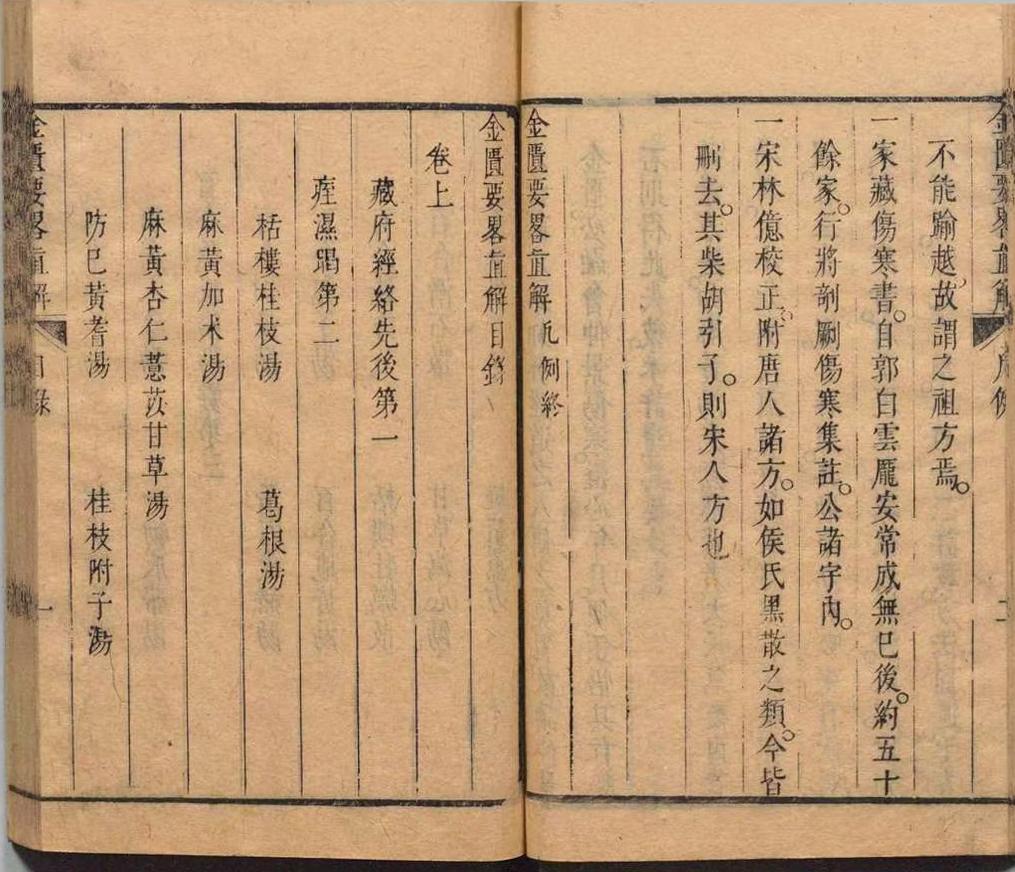 不能踰越故謂之祖方焉。
一家藏傷寒書。自郭白雲龐安常成無巳後。約五十
餘家。行將剞劂傷寒集註。公諸宇內。
一宋林億校正。附唐人諸方。如侯氏黑散之類。今皆
刪去。其柴胡引子。則宋人方也
金匱要畧直解凡例終
金匱要畧直解目錄
卷上
藏府經絡先後第一
痓濕暍第二
栝樓桂枝湯 葛根湯
麻黃加术湯
麻黃杏仁薏苡甘草湯
防巳黃耆湯 桂枝附子湯
金匱要畧直解 目錄 一